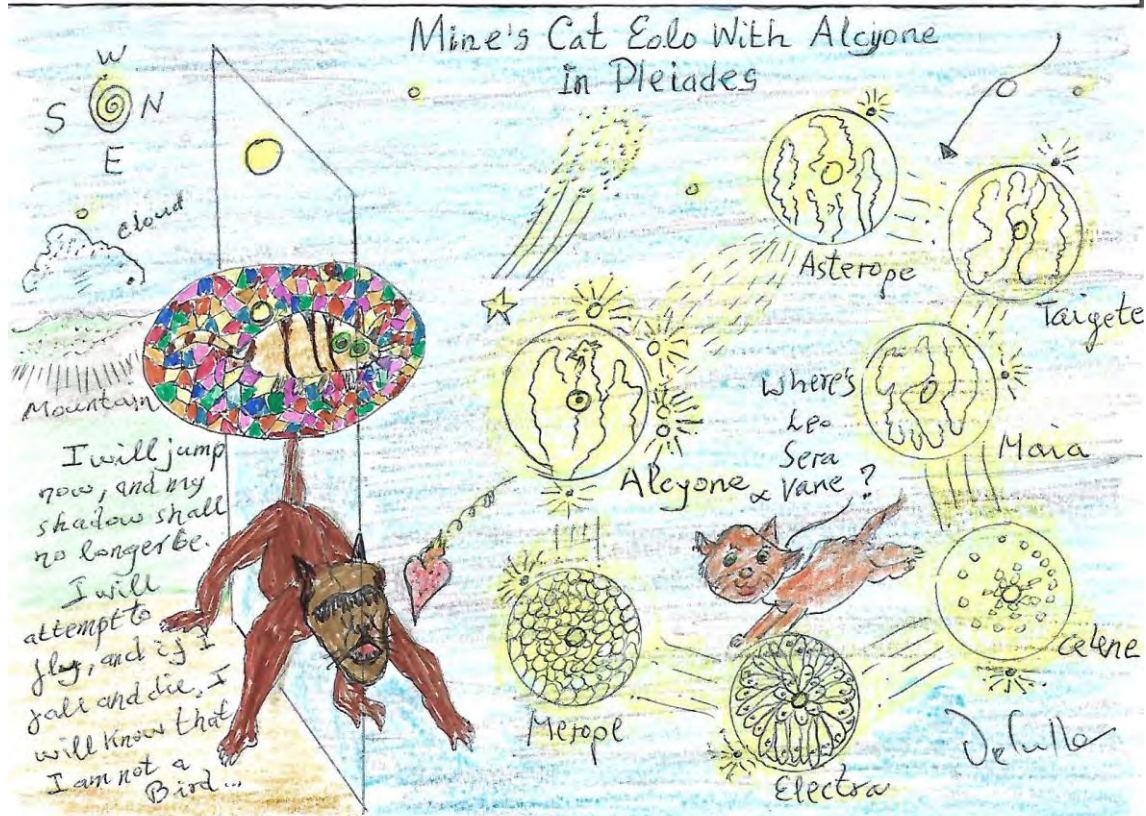 Mine's Cat Eolo With Alcyone
In Pleiades
W
S N
E
cloud
Mountain
I will jump
now, and my
shadow shall
no longer be.
I will
attempt to
fly, and if I
fall and die, I
will know that
I am not a
Bird...
Asterope
Taigete
Where's
Leo
Sera
& Vane?
Maia
Alcyone
Celene
Merope
Electra